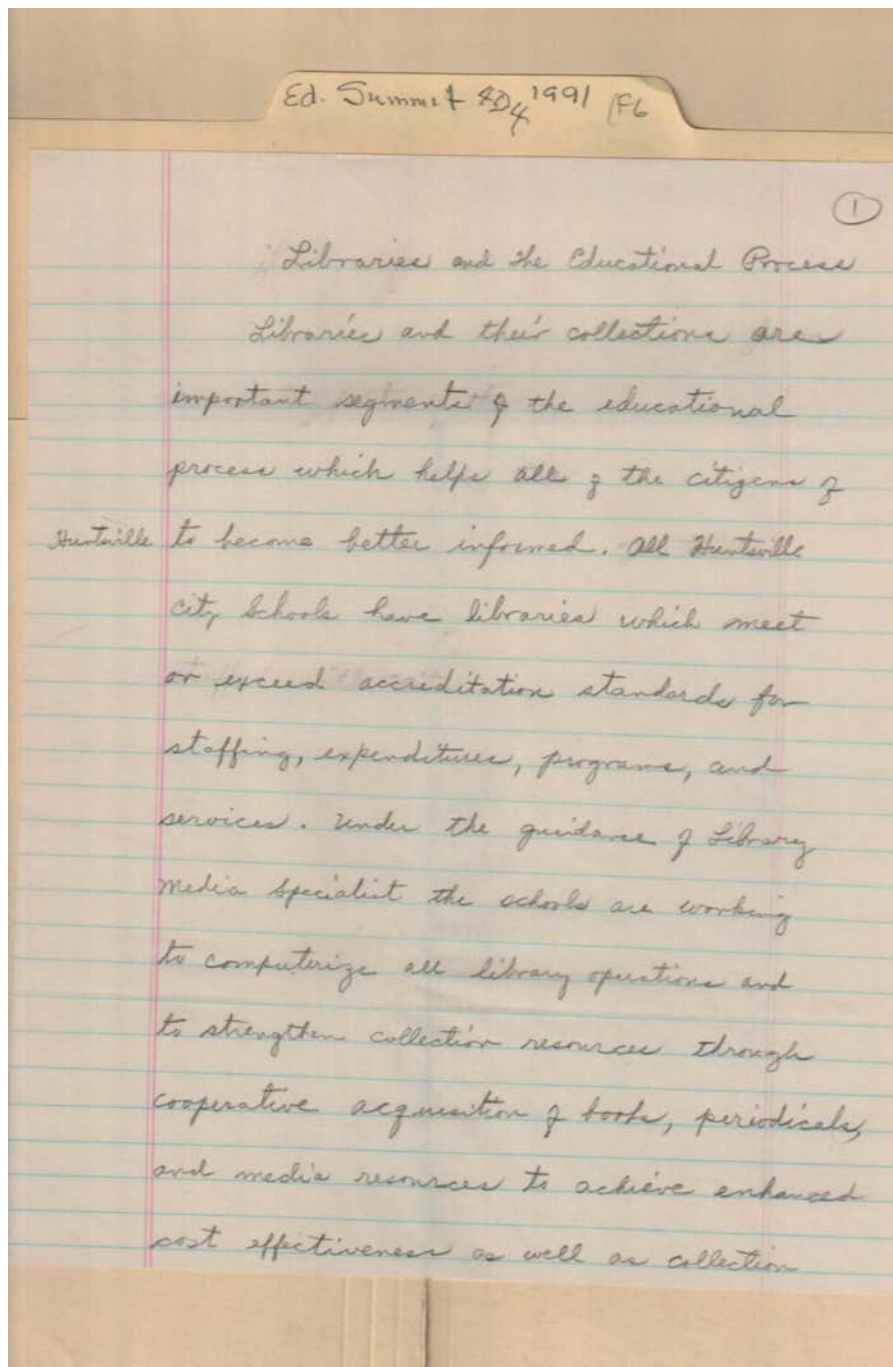 Ed. Summit 1991
1
Libraries and the Educational Process
Libraries and their collections are
important segments of the educational
process which helps all of the citizens of
Huntsville to become better informed. All Huntsville
city Schools have libraries which meet
or exceed accreditation standards for
staffing, expenditures, programs, and
services. Under the guidance of Library
Media Specialist the schools are working
to computerize all library operations and
to strengthen collection resources through
cooperative acquisition of books, periodicals,
and media resources to achieve enhanced
cost effectiveness as well as collection